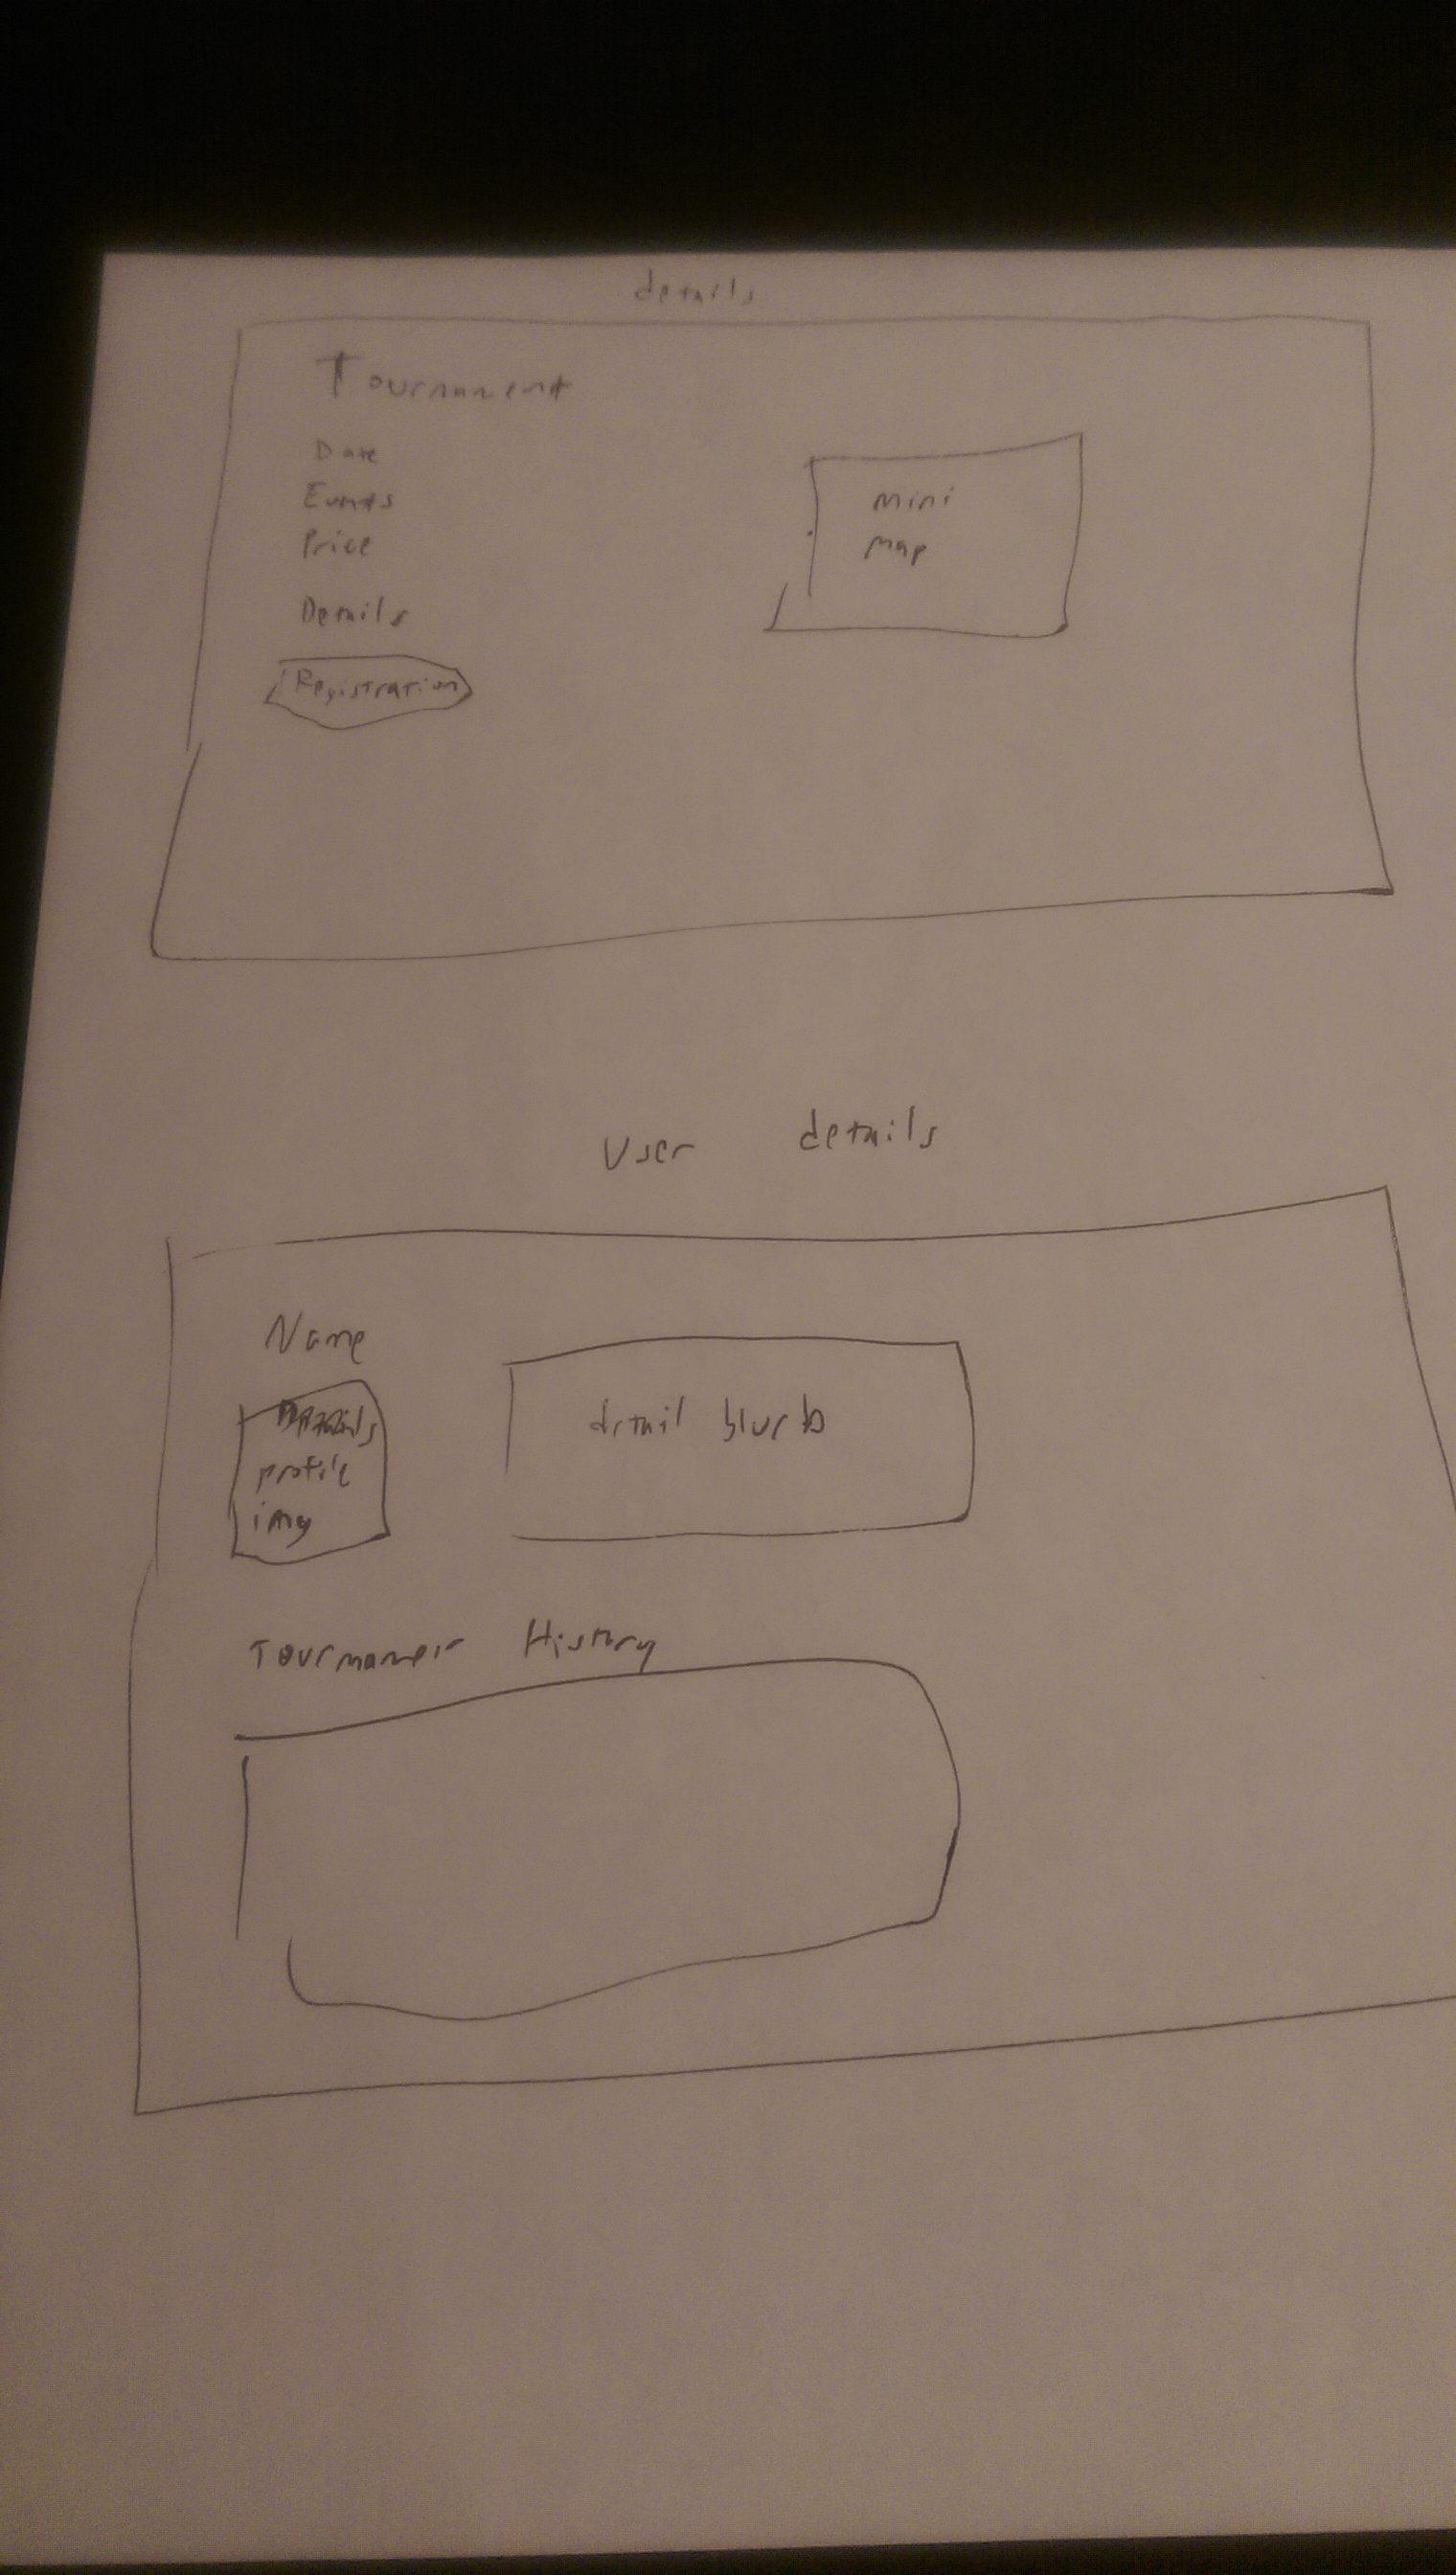 details
Tournament
Date
Events
Price
Details
Registration
mini
map
User details
Name
profile
img
detail blurb
Tournament History